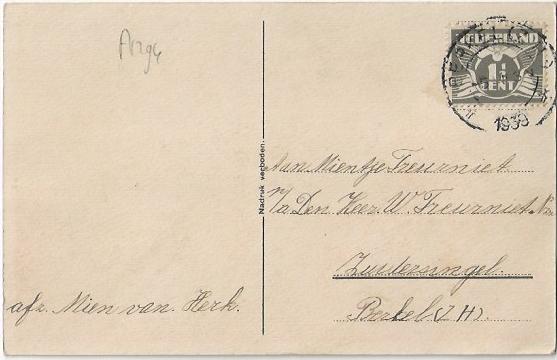 NEDERLAND
1½
CENT
1939
Nadruk verboden.
Aan Mientje Treurniet
p/a Den Heer W. Treurniet
Zuidersingel.
Berkel (Z H)
afz. Mien van. Herk.